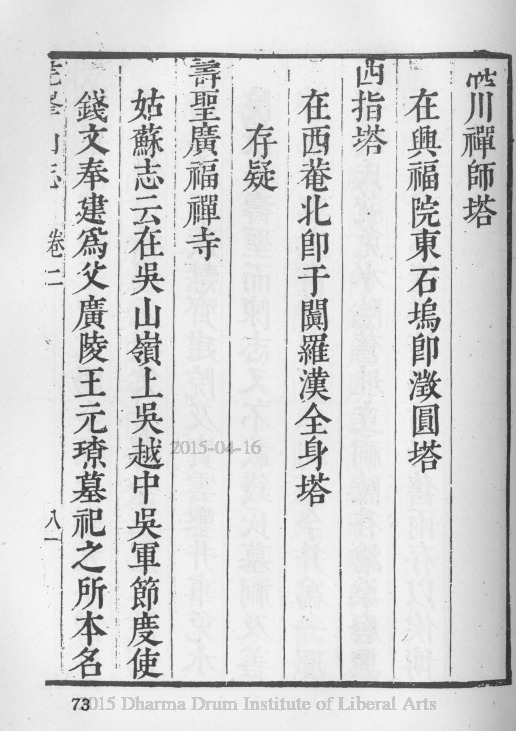 川禪師塔
在興福院東石塢卽澂圓塔
指塔
在西菴北卽于闐羅漢全身塔
存疑
壽聖廣福禪寺
姑蘇志云在吳山嶺上吳越中吳軍節度使
錢文奉建爲父廣陵王元璙墓祀之所本名
堯峯山志 卷二 八
2015-04-16
73
2015 Dharma Drum Institute of Liberal Arts